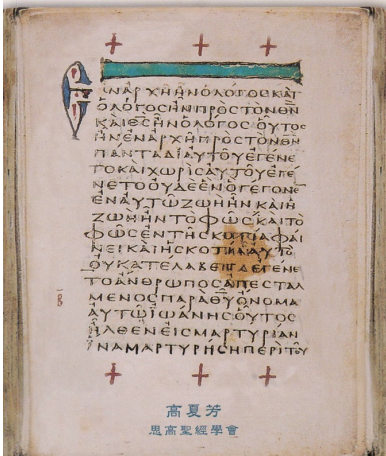 ΕΝΑΡΧΗΗΝΟΛΟΓΟϹΚΑΙ
ΟΛΟΓΟϹΗΝΠΡΟϹΤΟΝΘΝ
ΚΑΙΘϹΗΝΟΛΟΓΟϹ ΟΥΤΟϹ
ΗΝΕΝΑΡΧΗΠΡΟϹΤΟΝΘΝ
ΠΑΝΤΑΔΙΑΥΤΟΥΕΓΕΝΕ
ΤΟΚΑΙΧΩΡΙϹΑΥΤΟΥΕΓΕ
ΝΕΤΟΟΥΔΕΕΝΟΓΕΓΟΝΕ
ΕΝΑΥΤΩΖΩΗΗΝΚΑΙΗ
ΖΩΗΗΝΤΟΦΩϹΚΑΙΤΟ
ΦΩϹΕΝΤΗϹΚΟΤΙΑΦΑΙ
ΝΕΙΚΑΙΗϹΚΟΤΙΑΑΥΤΟ
ΟΥΚΑΤΕΛΑΒΕΝ ΕΓΕΝΕ
ΤΟΑΝΘΡΩΠΟϹΑΠΕϹΤΑΛ
ΜΕΝΟϹΠΑΡΑΘΥΟΝΟΜΑ
ΑΥΤΩΙΩΑΝΗϹΟΥΤΟϹ
ΗΛΘΕΝΕΙϹΜΑΡΤΥΡΙΑΝ
ΙΝΑΜΑΡΤΥΡΗϹΗΠΕΡΙΤΟΥ
高夏芳
思高聖經學會